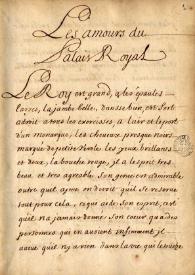 Les amours du
Palais Royal
Le Roy est grand, a les épaules
larges, la jambe belle, danse bien, est fort
adroit a tous les exercices, a l'air et le port
d'un monarque, les cheveux presque noirs
marqué de petite verole les yeux brillants
et doux, la bouche rouge, il a l'esprit tres
beau et tres agreable. Son genie est admirable
outre quil ayme on diroit quil se reserve
tout pour cela,
quil na jamais donné son coeur qua des
personnes qui en avoient infiniment, il
avoue quil n'y a rien dans la vie qui le touche